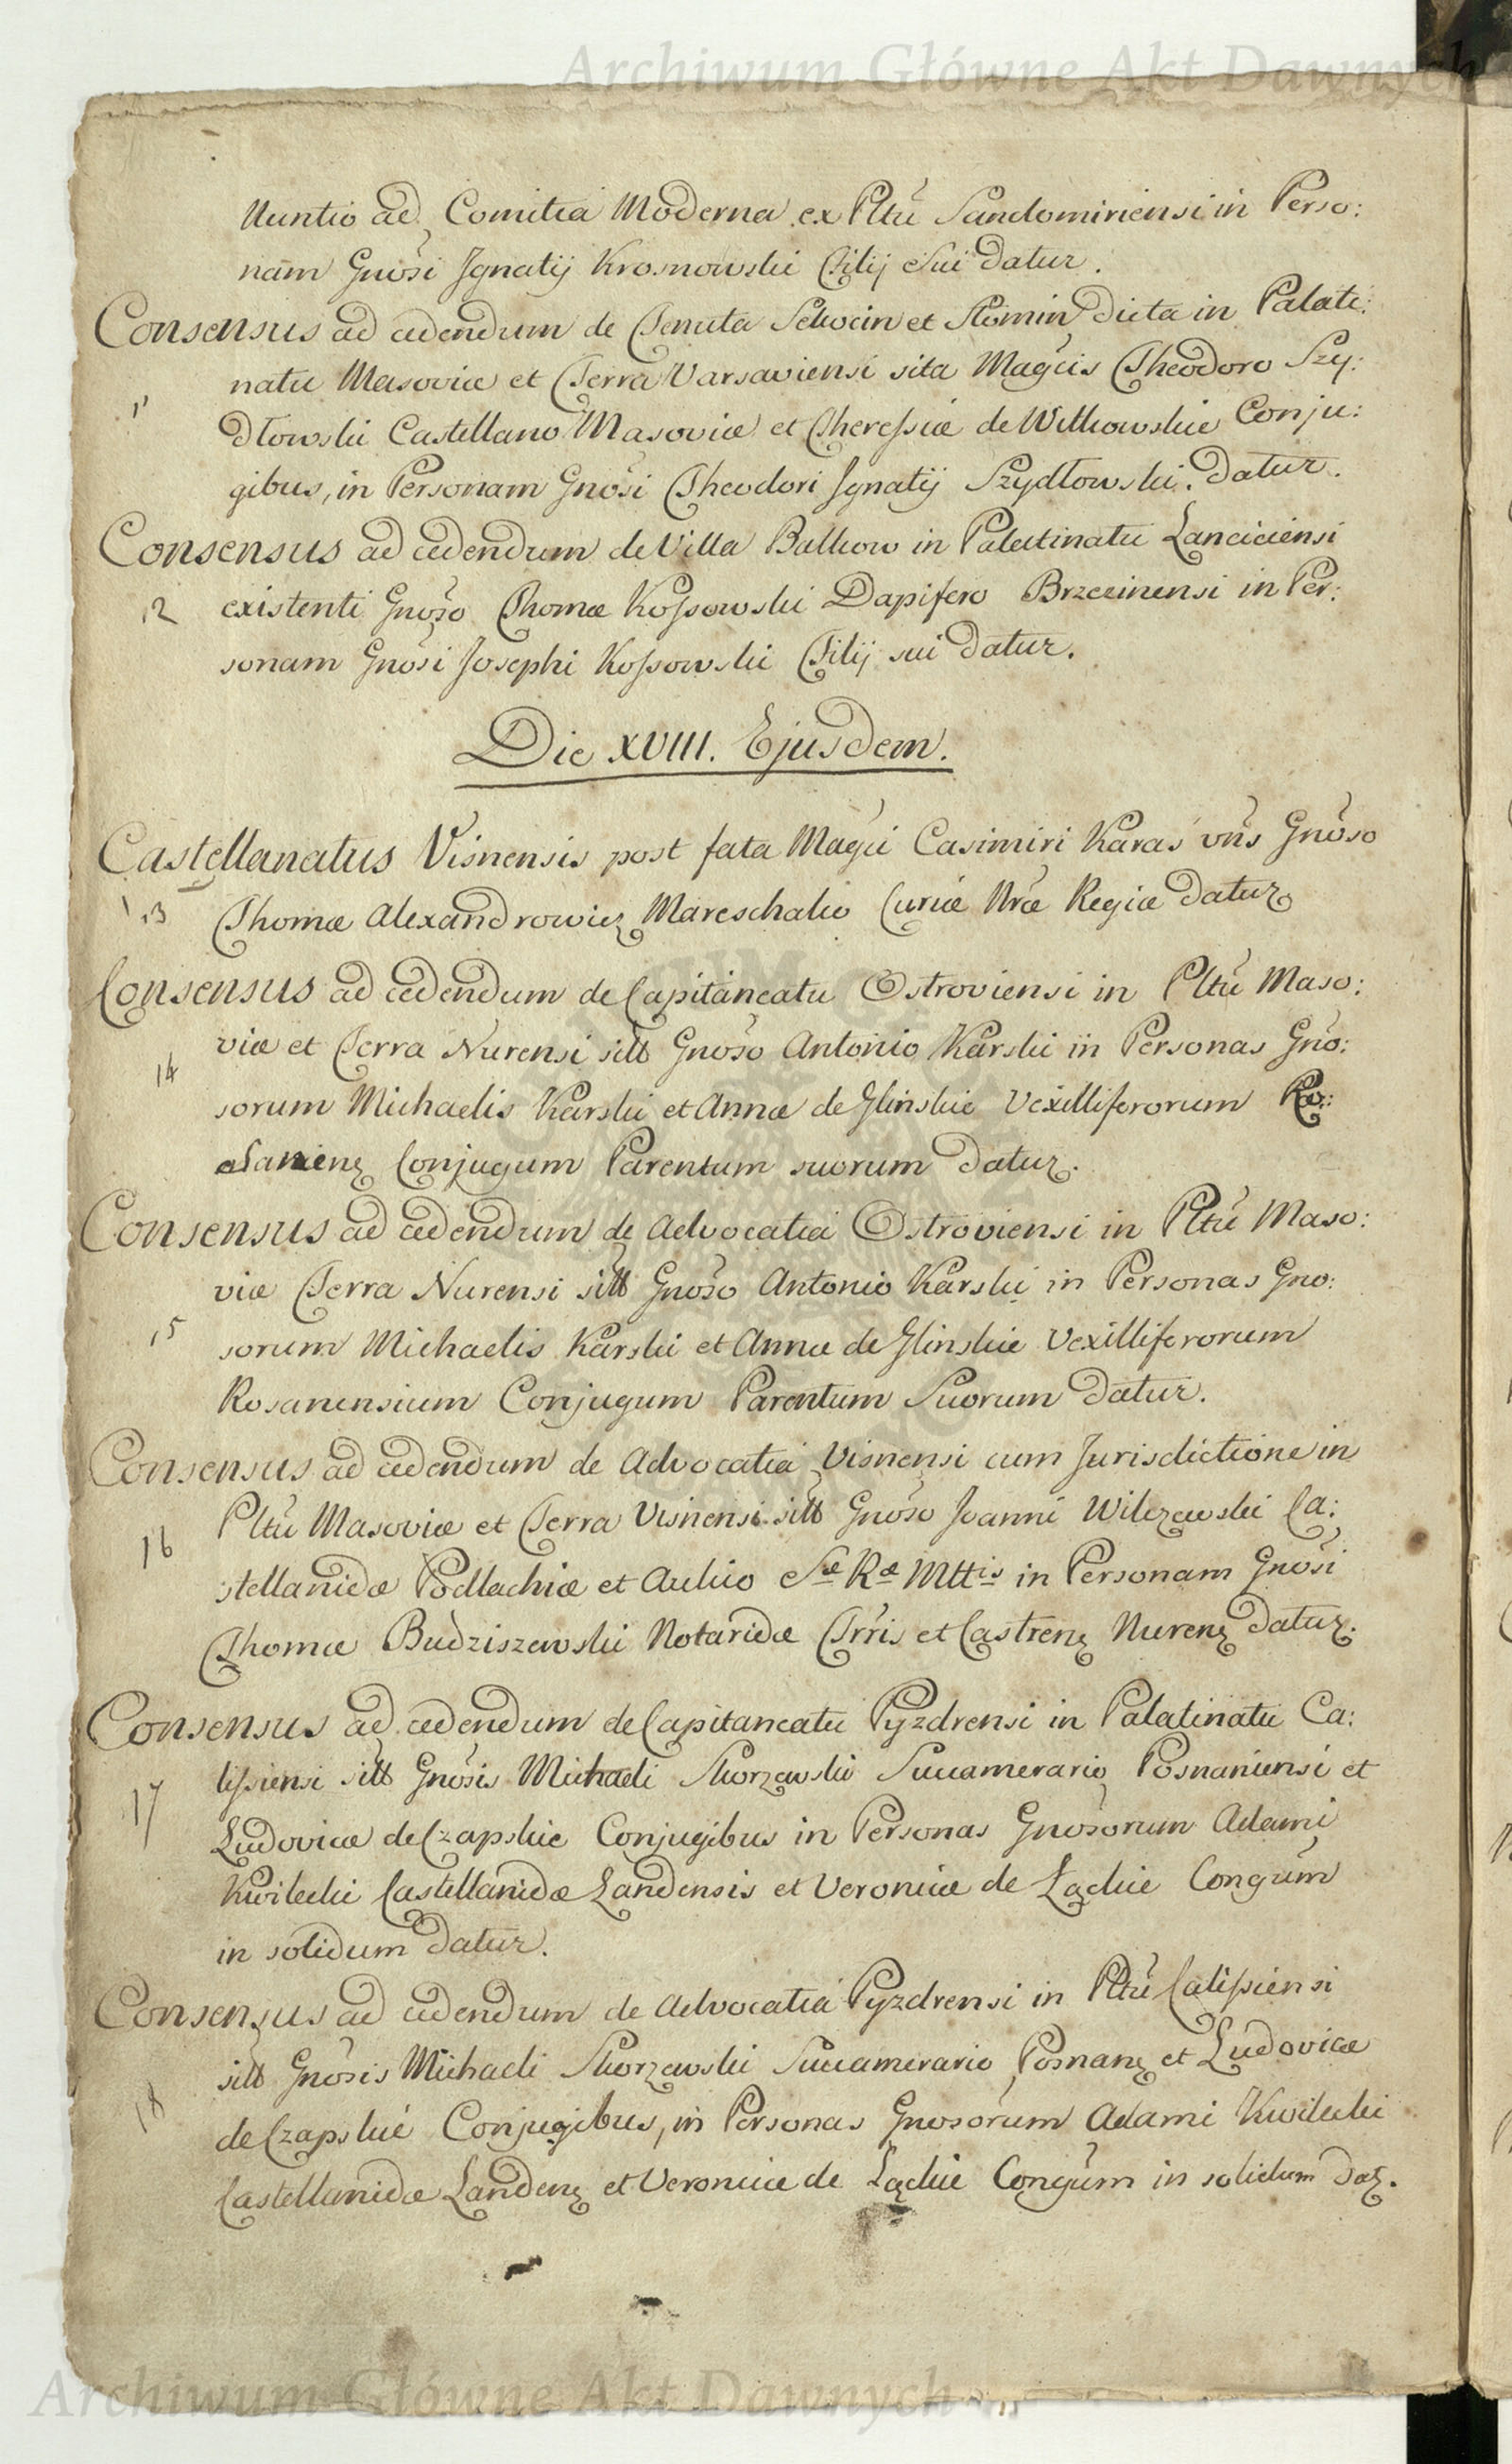 Archiwum Główne Akt Dawnych
Nuntio ad Comitia Moderna ex Pltũ Sandomiriensi in Perso:
nam Gnosi Ignatij Krosnowski Filij Sui Datur.
Consensus ad cedendum de Tenuta Sekocin et Słomin Dicta in Palati:
natu Masoviæ et Terra Varsaviensi sita Magcis Theodoro Szy:
11
dłowski Castellano Masoviæ et Theressiæ de Witkowskie Conju:
gibus, in Personam Gnosi Theodori Ignatij Szydłowski. Datur.
Consensus ad cedendum de Villa Balkow in Palatinatu Lanciciensi
12 existenti Gnoso Thomæ Kossowski Dapifero Brzezinensi in Per:
sonam Gnosi Josephi Kossowski Filij sui Datur.
Die XVIII. Ejusdem.
Castellanatus Visnensis post fata Magci Casimiri Karaś vñs Gnoso
13 Thomæ Alexandrowicz Mareschalio Curiæ Nræ Regiæ Datur
Consensus ad cedendum de Capitaneatu Ostroviensi in Pltũ Maso:
viæ et Terra Nurensi sitt Gnoso Antonio Karski in Personas Gno:
14
sorum Michaelis Karski et Annæ de Glinskie Vexilliferorum Ro:
sanienz Conjugum Parentum suorum Datur.
Consensus ad cedendum de Advocatia Ostroviensi in Pltũ Maso:
viæ Terra Nurensi sitt Gnoso Antonio Karski in Personas Gno:
15 sorum Michaelis Karski et Annæ de Glinskie Vexilliferorum
Rosanensium Conjugum Parentum Suorum Datur.
Consensus ad cedendum de Advocatia Visnensi cum Jurisdictione in
Pltũ Masoviæ et Terra Visnensi sitt Gnoso Joanni Wilczewski Ca:
16
stellanidæ Podlachiæ et Aulico Sæ Ræ Mttis in Personam Gnosi
Thomæ Budziszewski Notaridæ Trris et Castrenz Nurenz Datur.
Consensus ad cedendum de Capitaneatu Pyzdrensi in Palatinatu Ca:
lissiensi sitt Gnosis Michaeli Skorzewski Succamerario Posnaniensi et
17
Ludovicæ de Czapskie Conjugibus in Personas Gnosorum Adami
Kwilecki Castellanidæ Landensis et Veronicæ de Łąckie Congum
in solidum Datur.
Consensus ad cedendum de Advocatia Pyzdrensi in Pltũ Calissiensi
sitt Gnosis Michaeli Skorzewski Succamerario Posnanz et Ludovicæ
18
de Czapskie Conjugibus, in Personas Gnosorum Adami Kwilecki
Castellanidæ Landenz et Veronicæ de Łąckie Congum in solidum Datz.
Archiwum Główne Akt Dawnych